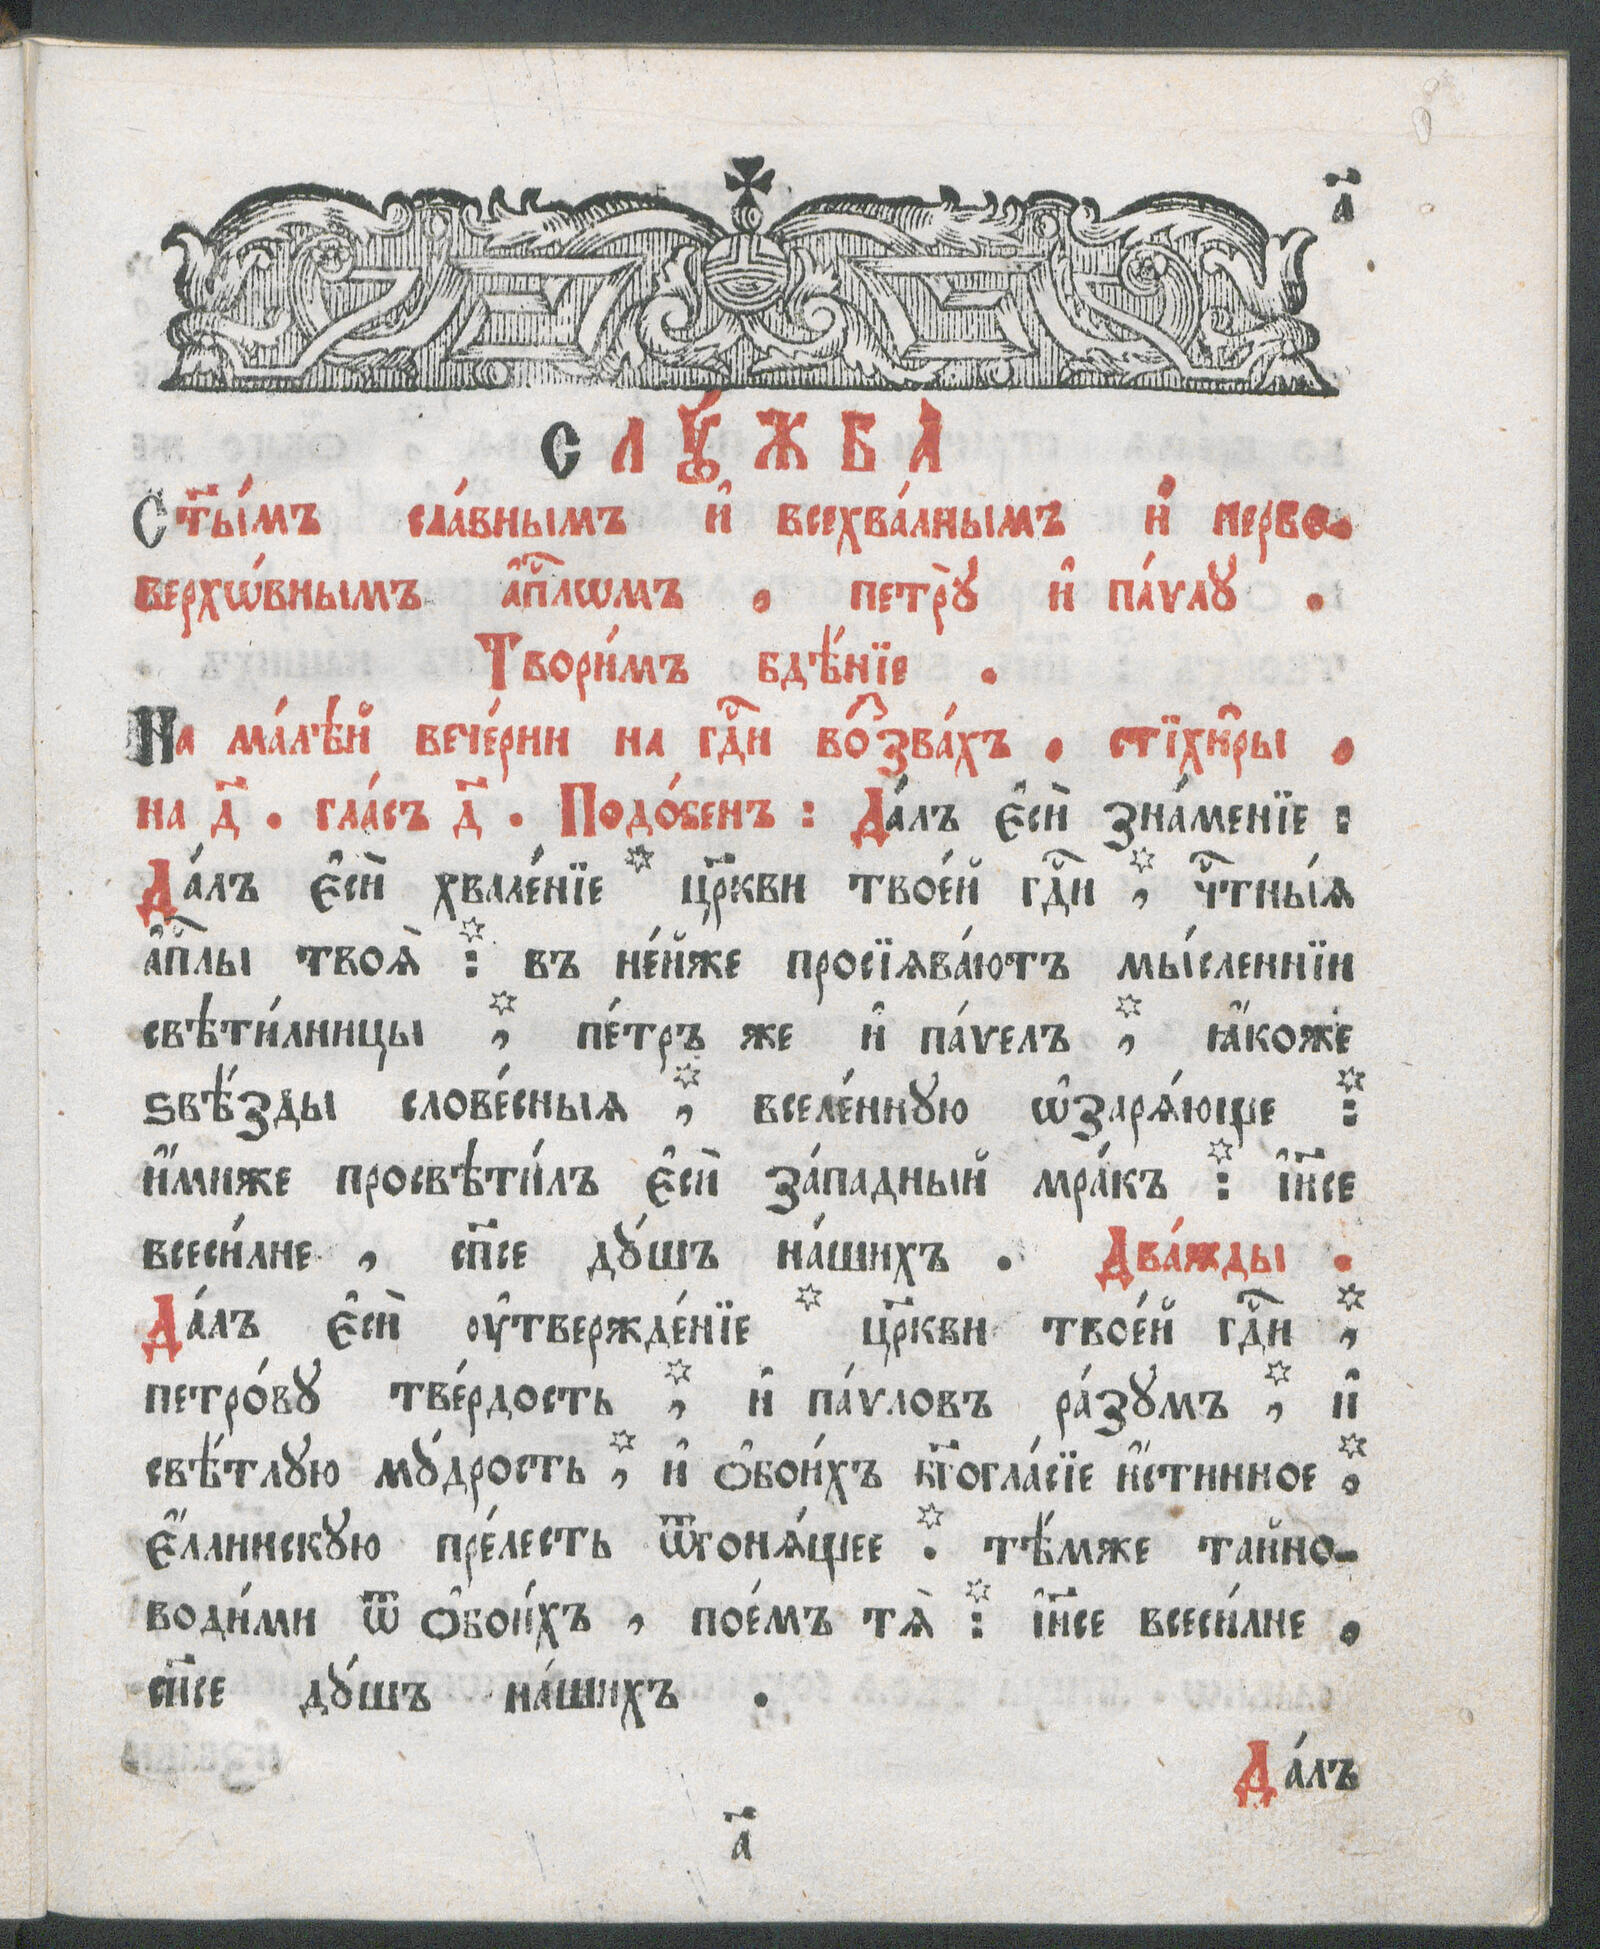 а҃
СЛꙊ́ЖБА
Ст҃ы́мъ сла́внымъ и҆ всехва́лнымъ и҆ перво-
верхѡ́внымъ а҆пⷭ҇лѡмъ , петрꙋ̀ и҆ па́ѵлꙋ .
Твори́мъ бдѣ́нїе .
На ма́лѣй вече́рни на гдⷭ҇и во̑ззва́хъ . стїхи̑ры .
на д҃ . гла́съ д҃ . Подо́бенъ : Да́лъ є҆сѝ зна́менїе :
Да́лъ є҆сѝ хвале́нїе * цр҃кви твое́й гдⷭ҇и ,* чⷭ҇тны́ѧ
а҆пⷭ҇лы твоѧ̀ :* въ не́йже просїѧва́ютъ мы́сленнїи
свѣти́лницы ,* пе́тръ же и҆ па́ѵелъ ,* ꙗ҆́коже
ѕвѣ́зды слове́сныѧ ,* вселе́ннꙋю ѡ҆заря́юще :*
и҆́миже просвѣти́лъ є҆сѝ за́падный мра́къ :* і҆и҃се
всеси́лне , сп҃се дꙋ́шъ на́шихъ . Два́жды .
Да́лъ є҆сѝ ᲂу҆твержде́нїе * цр҃кви твое́й гдⷭ҇и ,*
петро́вꙋ тве́рдость ,* и҆ па́ѵловъ ра́зꙋмъ ,* и҆
свѣ́тлꙋю мꙋ́дрость ,* и҆ ѻ҆бои́хъ бг҃огла́сїе и҆́стинное ,*
є҆́ллинскꙋю пре́лесть ѿгонѧ́щее .* тѣ́мже тайно-
води́ми ѿ ѻ҆бои́хъ , пое́мъ тѧ̀ :* і҆и҃се всеси́лне ,
сп҃се дꙋ́шъ на́шихъ .
Да́лъ
а҃